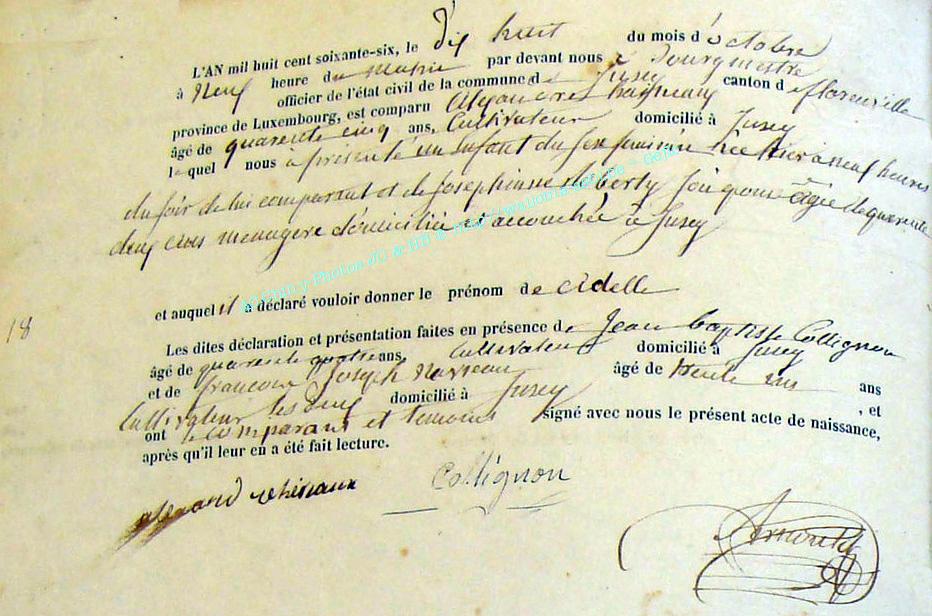 L'AN mil huit cent soixante-six, le Dix huit du mois d'octobre
à Neuf heure du Matin par devant nous Bourgmestre
officier de l'état civil de la commune de Jusey canton de florenville
province de Luxembourg, est comparu
âgé de quarente cinq ans, Cultivateur domicilié à Jusey
lequel nous a présenté un Enfant du sexe féminin née hier à neuf heures
du soir de lui comparant et de Josephinne son épouse âgée de quarente
deux ans menagère domiciliée et accouchée à Jusey
et auquel il a déclaré vouloir donner le prénom de Adelle
18
Les dites déclaration et présentation faites en présence de Jean baptiste Collignon
âgé de quarente quatre ans, Cultivateur domicilié à Jusey
et de francois Joseph âgé de trente un ans
Cultivateur domicilié à Jusey , et
ont comparant et temoins signé avec nous le présent acte de naissance,
après qu'il leur en a été fait lecture.
Collignon